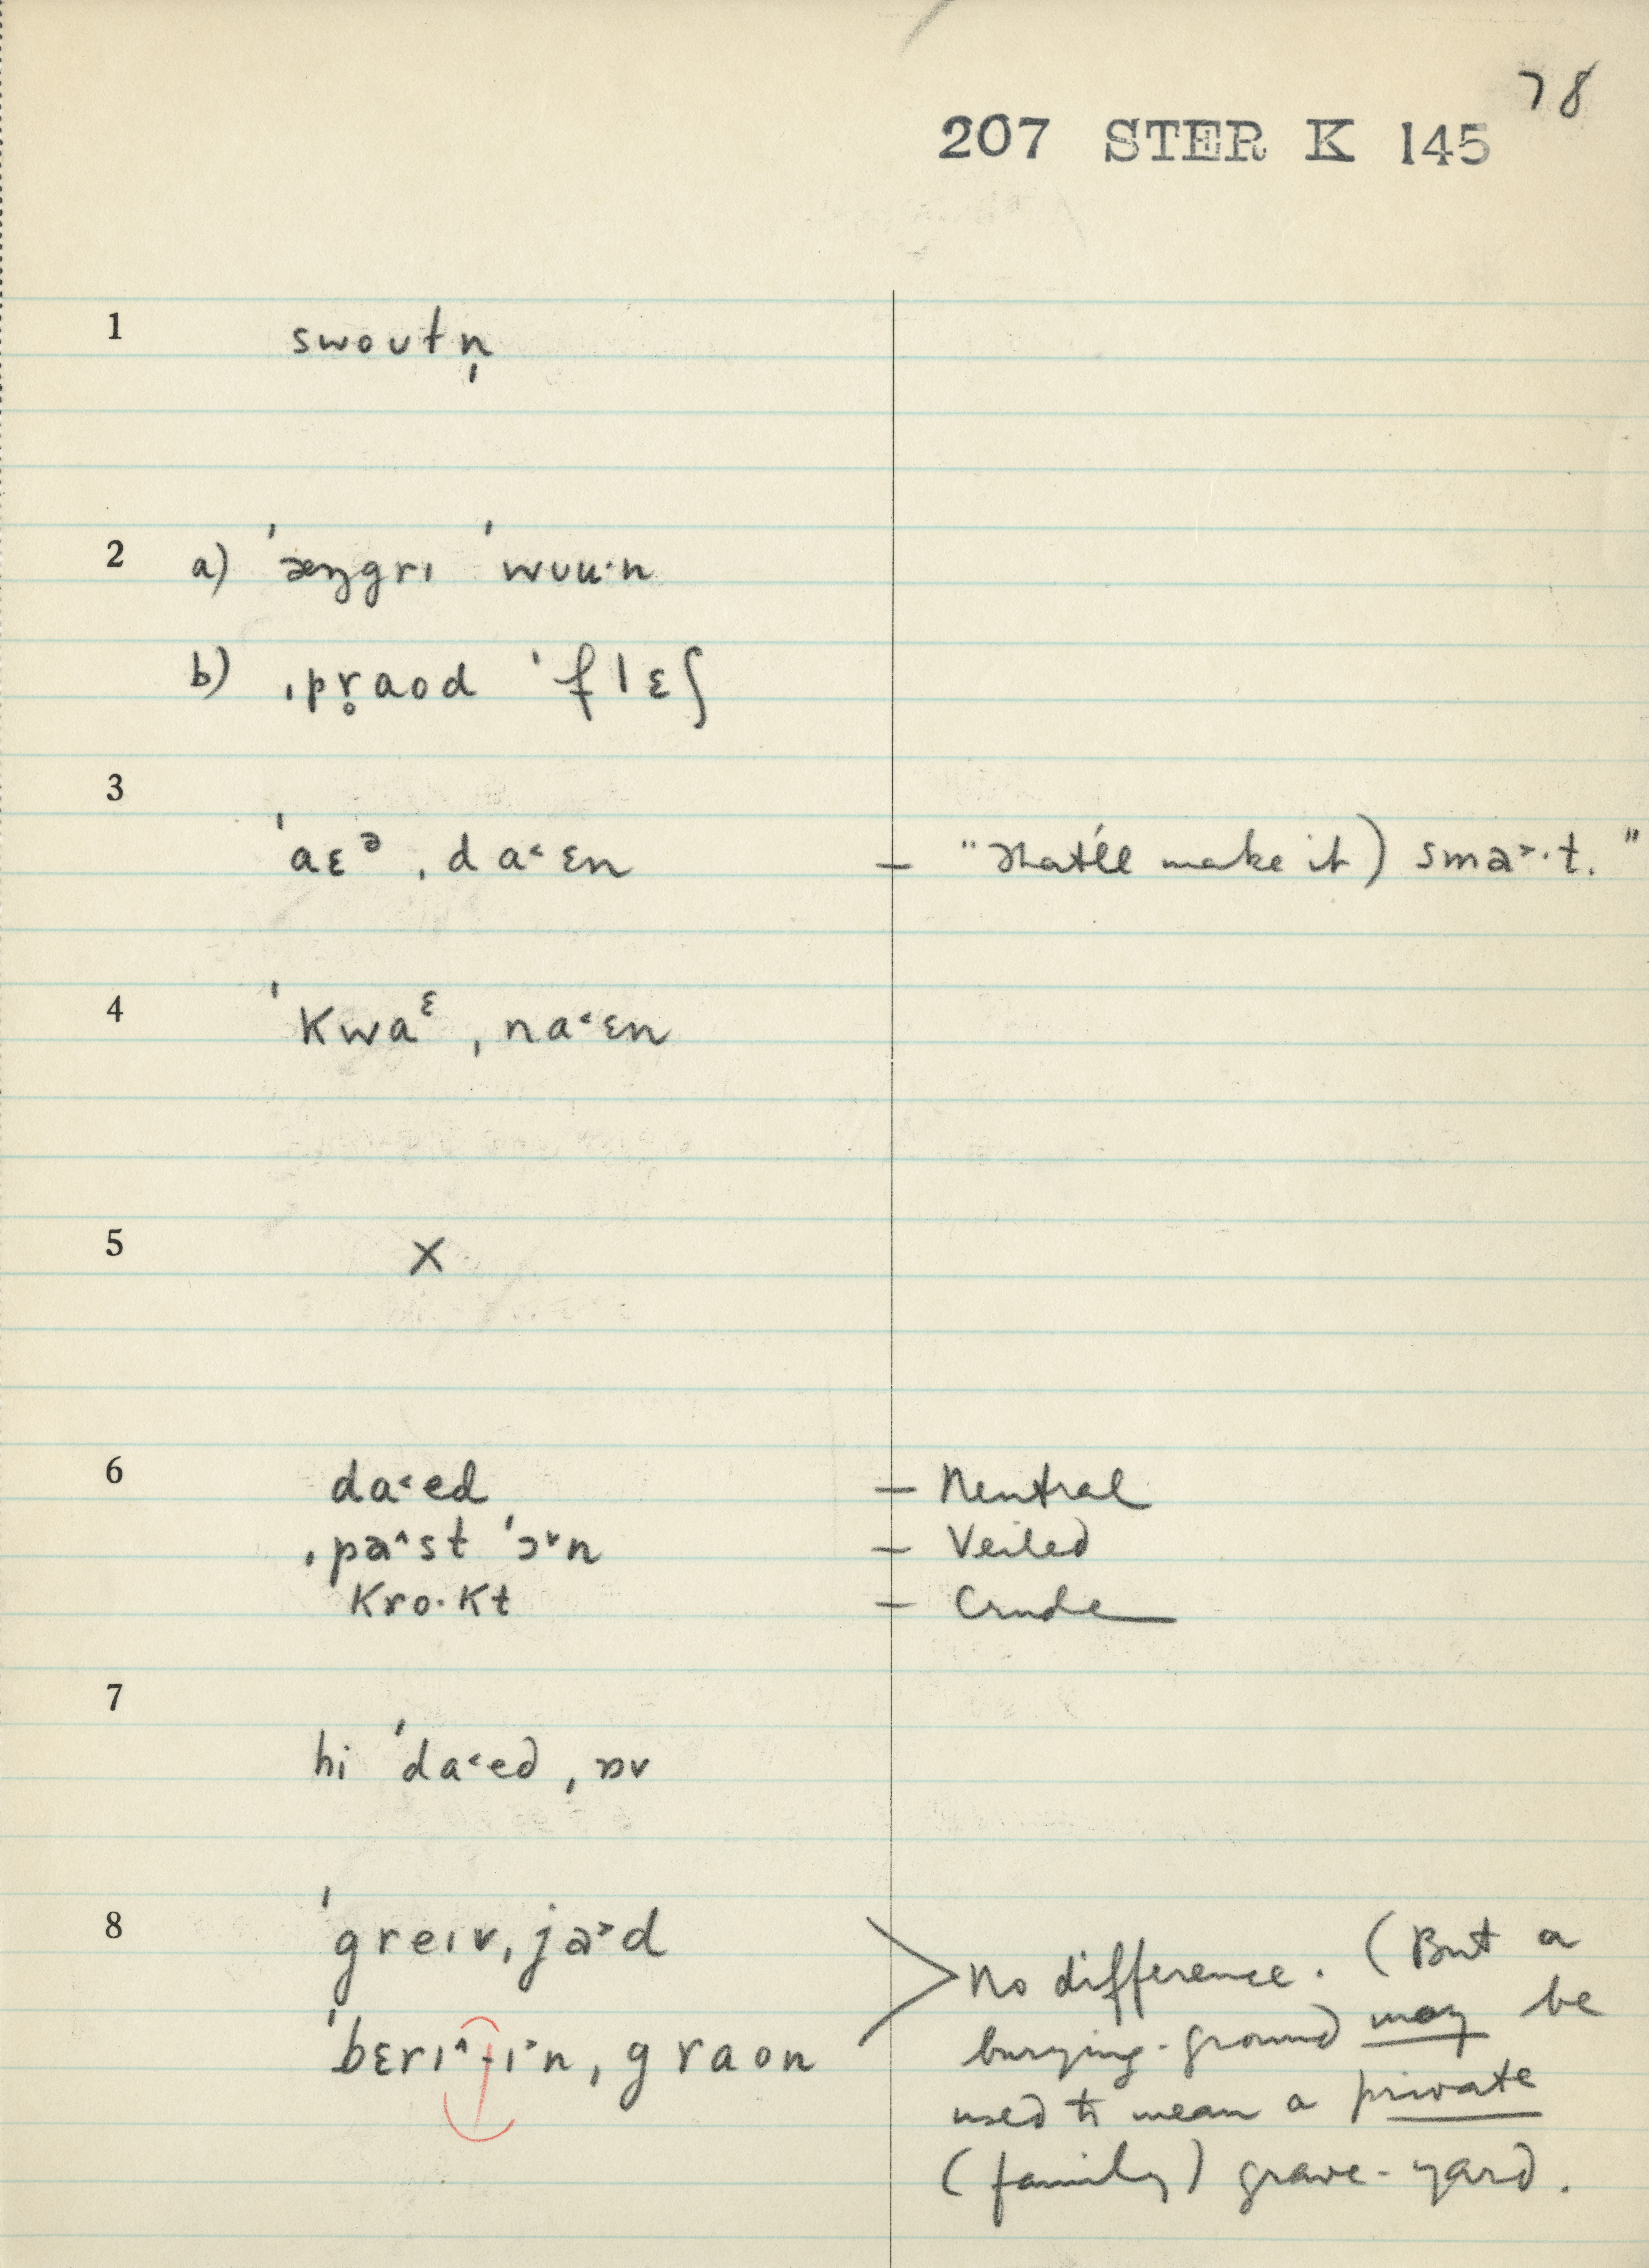 78
207 STER K 145
1 swoʊtn̩
2 a) ˈæŋgrɪ ˈwʊuˑn
b) ˌpr̥aod ˈflɛʃ
3
ˈaɛᵊˌda˂ɛn – "That'll make it) sma˃ˑt."
4 ˈKwaᵋˌna˂ɛn
5 X
6 da˂ed – Neutral
ˌpa˄st ˈɔ˅n – Veiled
Kroˑkt – Crude
7
hi ˈda˂edˌɒv
8 ˈgreɪvˌja˃d
ˈbɛrɪ˄-ɪ˃nˌgraon
No difference. (But a
burying-ground may be
used to mean a private
(family) grave-yard.